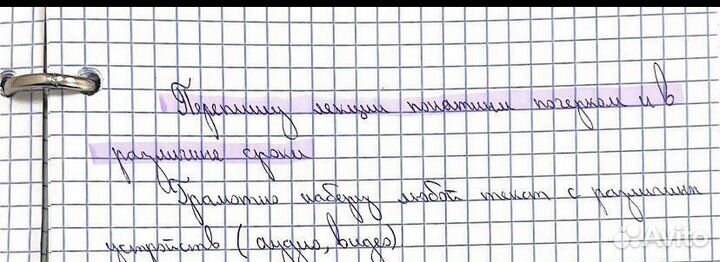 Перепишу лекции понятным почерком и в
различные сроки
Грамотно наберу любой текст с различных
устройств (аудио, видео)
Avito